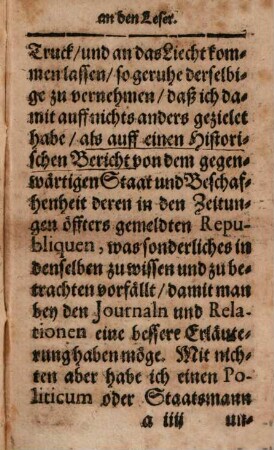 an den Leser.
Truck / und an das Liecht kom⸗
men lassen / so geruhe derselbi⸗
ge zu vernehmen / daß ich da⸗
mit auff nichts anders gezielet
habe / als auff einen Histori⸗
schen Bericht von dem gegen⸗
wärtigen Staat und Beschaf⸗
fenheit deren in den Zeitun⸗
gen öffters gemeldten Repu⸗
bliquen, was sonderliches in
denselben zu wissen und zu be⸗
trachten vorfällt / damit man
bey den Journaln und Rela⸗
tionen eine bessere Erläute⸗
rung haben möge. Mit nich⸗
ten aber habe ich einen Po⸗
liticum oder Staatsmann
a iiij un⸗